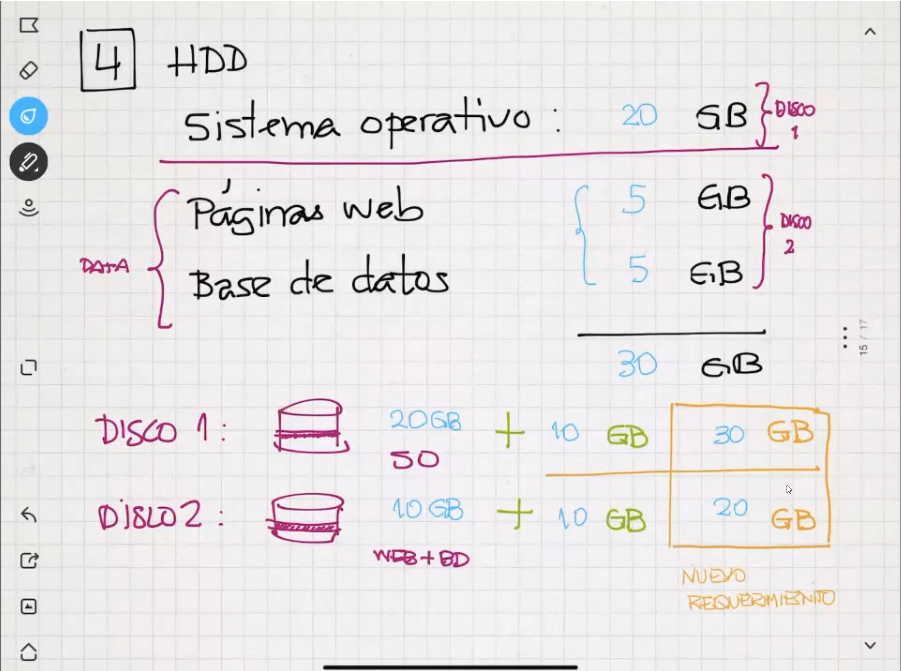 4 HDD
Sistema operativo : 20 GB } DISCO 1
DATA { Páginas web { 5 GB } DISCO 2
Base de datos 5 GB
30 GB
DISCO 1 : 20GB + 10 GB 30 GB
SO
DISCO 2 : 10 GB + 10 GB 20 GB
WEB + BD
NUEVO
REQUERIMIENTO
15 / 17